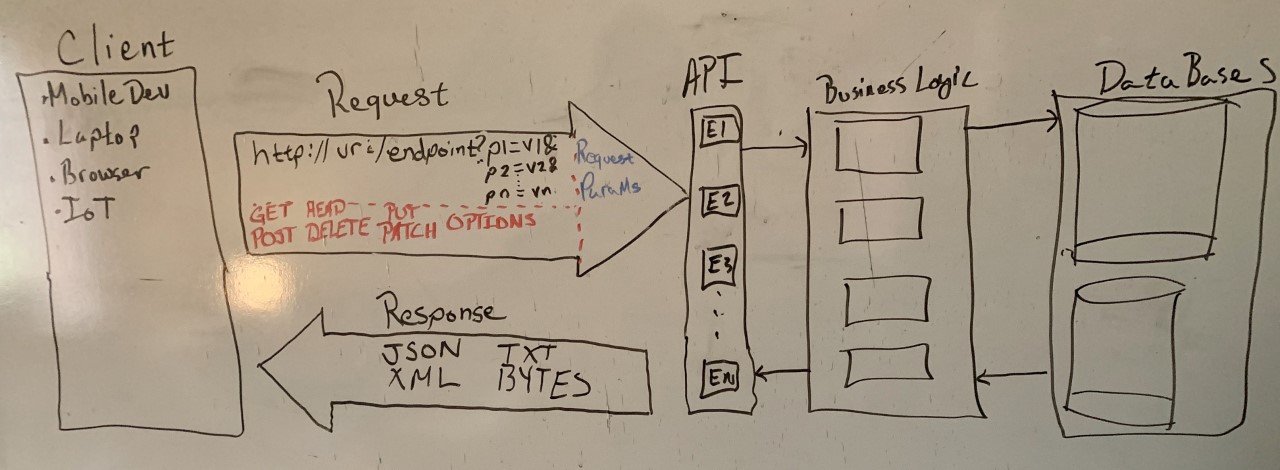 Client
·Mobile Dev
·Laptop
·Browser
·IoT
Request
http://uri/endpoint?p1=v1&
p2=v2&
pn=vn
Request
Params
GET HEAD PUT
POST DELETE PATCH OPTIONS
Response
JSON TXT
XML BYTES
API
E1
E2
E3
En
Business Logic
DataBases